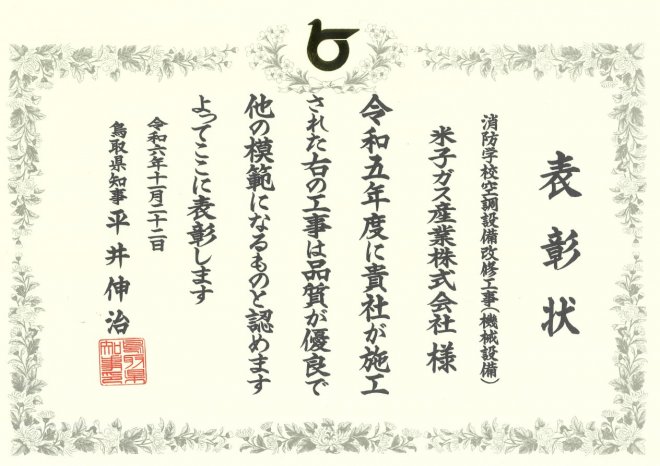 表彰状
消防学校空調設備改修工事(機械設備)
米子ガス産業株式会社 様
令和五年度に貴社が施工
された右の工事は品質が優良で
他の模範になるものと認めます
よってここに表彰します
令和六年十一月二十二日
鳥取県知事 平井伸治
鳥取県
知事之印